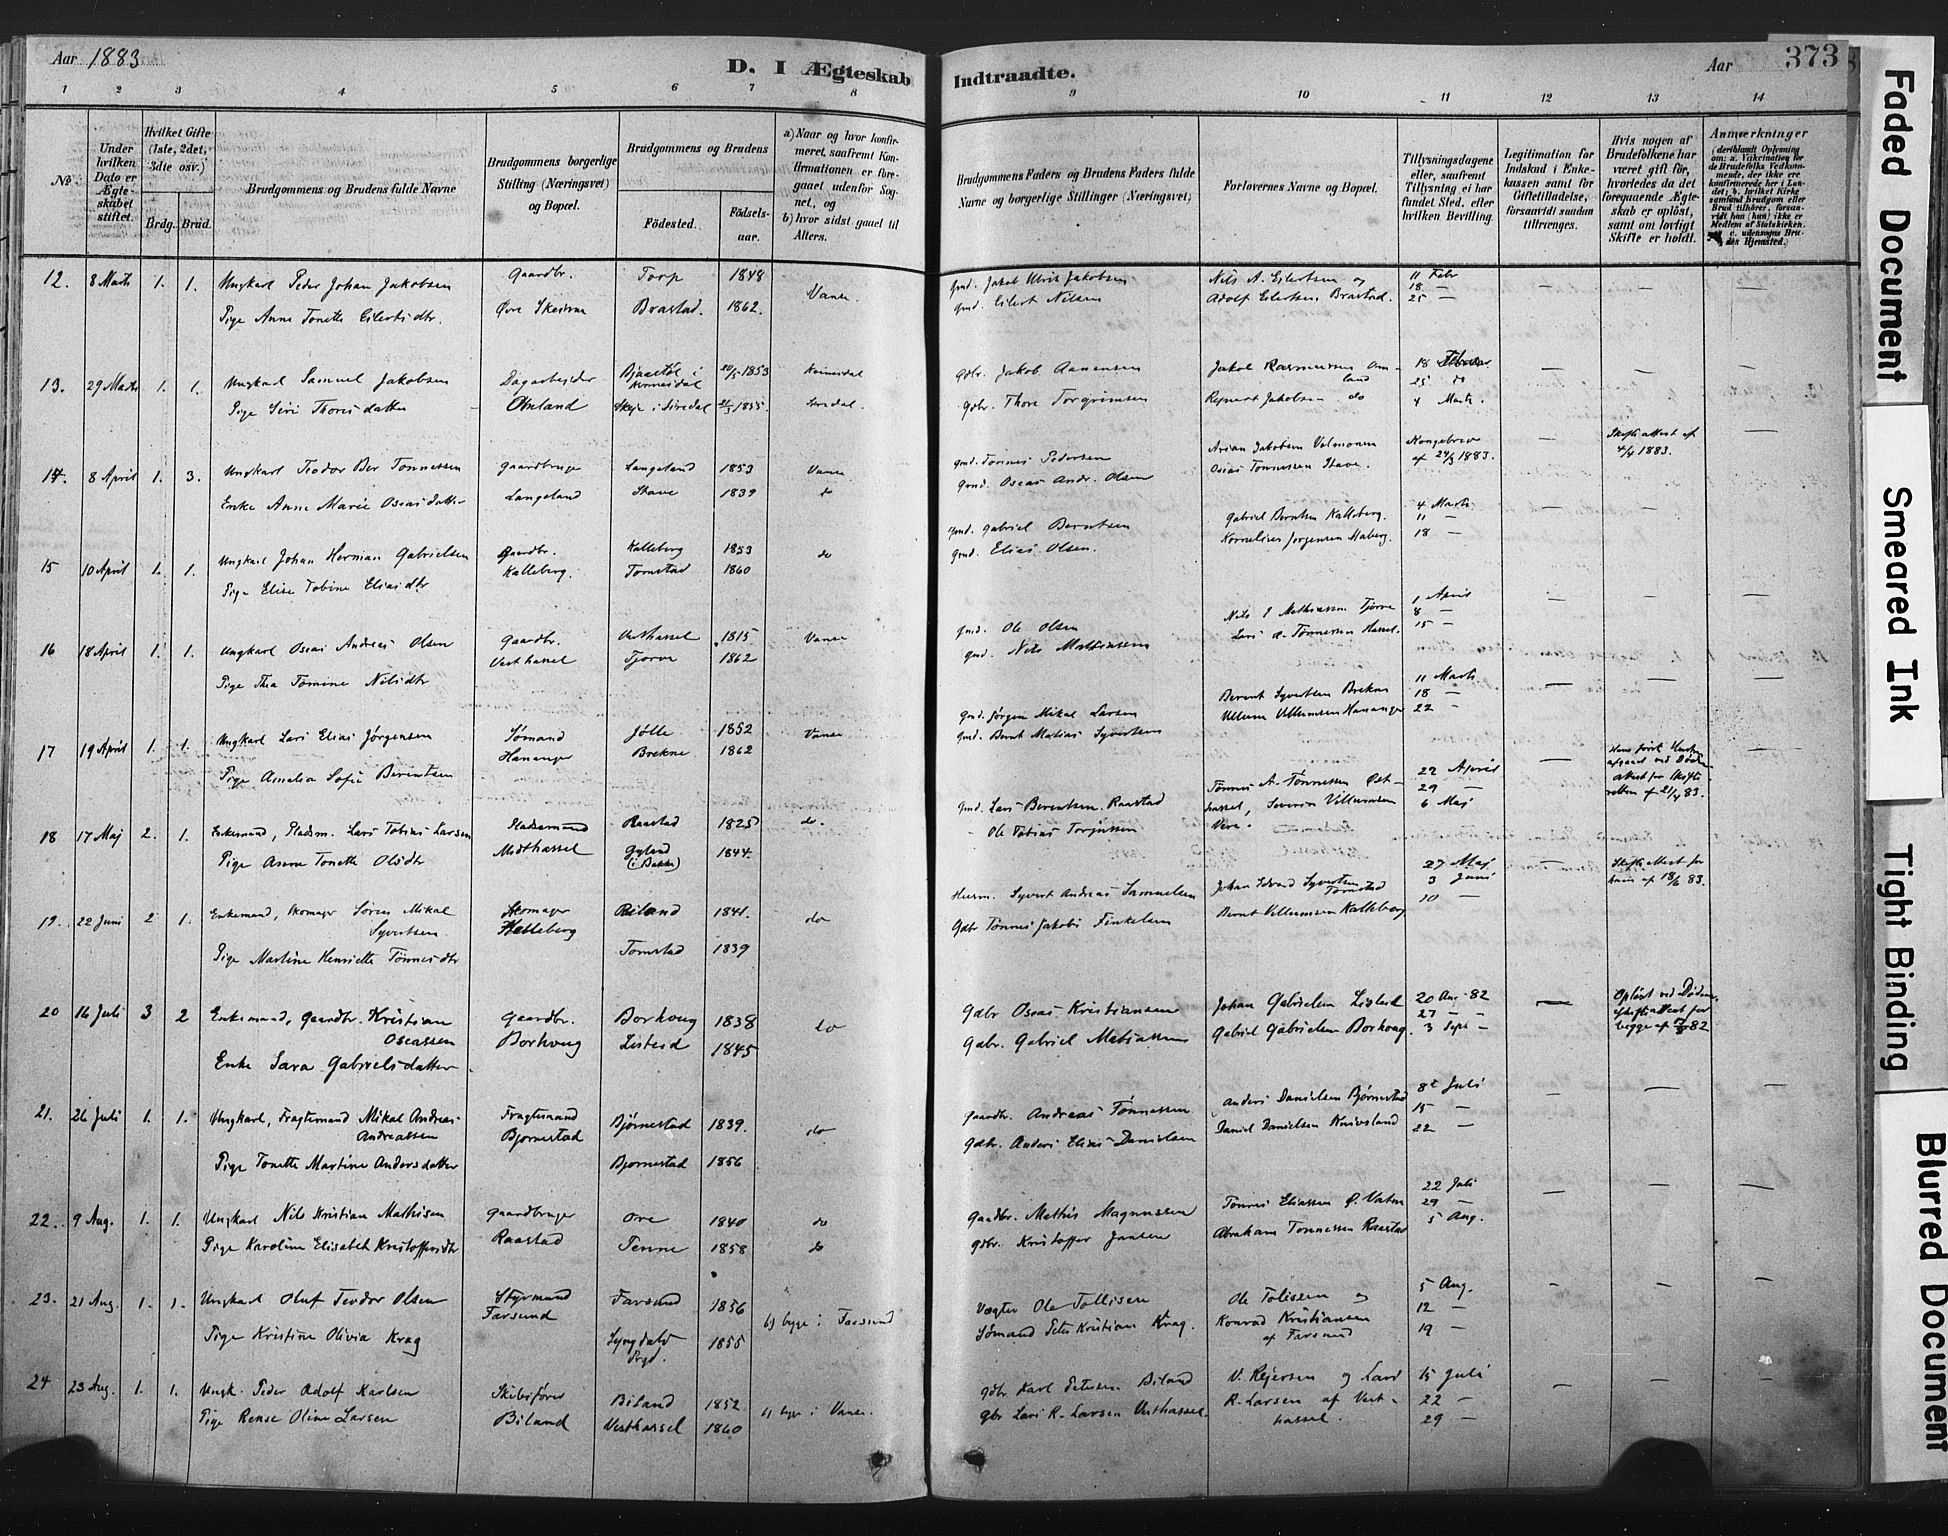 Aar 1883
D. I Ægteskab Indtraadte.
Aar
373
1 2 3 4 5 6 7 8 9 10 11 12 13 14
No.
Under hvilken Dato er Ægteskabet stiftet.
Hvilket Gifte (1ste, 2det, 3die osv.)
Brdg. Brud.
Brudgommens og Brudens fulde Navne
Brudgommens borgerlige Stilling (Næringsvei) og Bopæl.
Brudgommens og Brudens
Fødested.
Fødselsaar.
a) Naar og hvor konfirmeret, saafremt Konfirmationen er foregaaet udenfor Sognet, og
b) hvor sidst gaaet til Alters.
Brudgommens Faders og Brudens Faders fulde Navne og borgerlige Stillinger (Næringsvei)
Forlovernes Navne og Bopæl.
Tillysningsdagene eller, saafremt Tillysning ei har fundet Sted, efter hvilken Bevilling.
Legitimation for Indskud i Enkekassen samt for Giftetilladelse, forsaavidt saadan tiltrænges.
Hvis nogen af Brudefolkene har været gift før, hvorledes da det foregaaende Ægteskab er opløst, samt om lovligt Skifte er holdt.
Anmærkninger
(deriblandt Oplysning om: a. Vakcination for de Brudefolks Vedkommende, der ikke ere konfirmerede her i Landet; b. hvilket Kirkesamfund Brudgom eller Brud tilhører, forsaavidt han (hun) ikke er Medlem af Statskirken. c. udensogns Brudes Hjemsted.)
12. 8 Marts 1. 1. Ungkarl Peder Johan Jakobsen Gaardbr. Torp 1848 Vanse. Gmd. Jakob Ulrik Jakobsen Nils A. Eilertsen og 11 Febr
Pige Anne Tonette Eilertsdtr. Øvre Skeime Brastad. 1862. Gmd. Eilert Nilsen Adolf Eilertsen Brastad. 18 —
25 —
13. 29 Marts 1. 1. Ungkarl Samuel Jakobsen Dagarbeider 1853 Gdbr. Jakob Aanensen Jakob Rasmussen Omland 18 Februar
Pige Siri Thoresdatter Omland Skeje i Siredal 1855. Siredal. Gdbr. Thore Torgrimsen Jakobsen do 25 do
4 Marts.
14. 8 April 1. 3. Ungkarl Teodor Ber Tønnessen Gaardbruger Langeland 1853 Vanse Gmd. Tønnes Pedersen Jakobsen Kongebrev
Enke Anne Marie Oseasdatter Langeland Stave 1839 do Gmd. Oseas Andr. Olsen Oseas Tønnessen Stave. af 24/3 1883. Skifteattest af 4/4 1883.
15 10 April 1. 1. Ungkarl Johan Herman Gabrielsen Gaardbr. Kalleberg 1853 do Gmd. Gabriel Berntsen Gabriel Berntsen Kalleberg. 4 Marts
Pige Elise Tobine Eliasdtr Kalleberg. Tomstad 1860 Gmd. Elias Olsen. Kornelius Jørgensen Haberg. 11 —
18 —
16 18 April 1. 1. Ungkarl Oseas Andreas Olsen Gaardbr. Vesthassel 1815 Vanse Gmd. Ole Olsen Nils Mathiassen Tjørve 1 April
Pige Thea Tomine Nilsdtr Vesthassel Tjørve 1862 Gmd. Nils Mathiasen Lars A. Tønnessen Hassel. 8 —
15 —
17 19 April 1. 1. Ungkarl Lars Elias Jørgensen Sømand Jølle 1852 Vanse Gmd. Jørgen Mikal Larsen Berent Syvertsen Brekne 11 Marts
Pige Amalia Sofie Berentsen Hananger Brekne 1862 Gmd. Bernt Matias Syvertsen Villum Villumsen Hananger 18 —
22 —
18 17 Maj 2. 1. Enkemand, Pladsm. Lars Tobias Larsen Pladsemand Raastad 1825 do. Gmd. Lars Berentsen Raastad Tønnes A. Tønnessen Østhassel, Severin Villumsen Vere. 22 April
Pige Anne Tonette Olsdtr Midthassel Gyland (i Bakke) 1844. Ole Tobias Torjussen 29 —
6 Maj
19. 22 Juni 2 1. Enkemand, Skomager Søren Mikal Syvertsen. Skomager Kalleberg Biland 1841. do Husm. Syvert Andreas Samuelsen Johan Edvard Syvertsen Tomstad 27 Maj Skifteattest for ham af 18/6 83.
Pige Martine Henriette Tønnesdtr Tomstad 1839 Gdbr Tønnes Jakobs Finkelsen Bernt Villumsen Kalleberg 3 Juni
10 —
20 16 Juli 3 2 Enkemand, Gaardbr. Kristian Oseassen Gaardbr. Borhoug 1838 do Gdbr Oseas Kristiansen Johan Gabrielsen Listeid 20 Aug. 82 Opløst ved Døden,
Enke Sara Gabrielsdatter. Borhoug Listeid 1845 Gdbr. Gabriel Matiassen Gabriel Gabrielsen Borhoug. 27 — —
3 Sept —
21. 26 Juli 1. 1. Ungkarl, Fragtemand Mikal Andreas Andreassen Fragtemand Bjørnestad 1839. do Gaardbr. Andreas Tønnessen Anders Danielsen Bjørnestad 8de Juli
Pige Tonette Martine Andersdatter Bjørnestad Bjørnestad 1856 Gdbr. Anders Elias Danielsen Daniel Danielsen Knivsland 15 —
22 —
22. 9 Aug. 1. 1. Ungkarl Nils Kristian Mathisen Gaardbruger Ore 1840 do Gaardbr. Mathis Magnussen Tønnes Eliassen Ø. Vatne 22 Juli
Pige Karoline Elisabet Kristoffersdtr Raastad Tenne 1858 do Gdbr. Kristoffer Jansen Abraham Tønnessen Raastad 29 —
5 Aug.
23. 21 Aug. 1. 1. Ungkarl Oluf Teodor Olsen Styrmand Farsund 1856 b) begge i Farsund Vægter Ole Tollisen Ole Tolissen og 5 Aug.
Pige Kristine Olivia Krag Farsund Lyngdals Prgd. 1855 Sømand Peter Kristian Krag. Konrad Kristiansen af Farsund 12 —
19 —
24 23 Aug. 1. 1. Ungk. Peder Adolf Karlsen Skibsfører Biland 1852 b) begge i Vanse. Gdbr Karl Petersen Biland V. Rejersen og Lars 15 Juli
Pige Rense Oline Larsen Biland Vesthassel 1860 Gbr Lars R. Larsen Vesthassel. R. Larsen af Vesthassel. 22 —
29 —
Faded Document
Smeared Ink
Tight Binding
Blurred Document